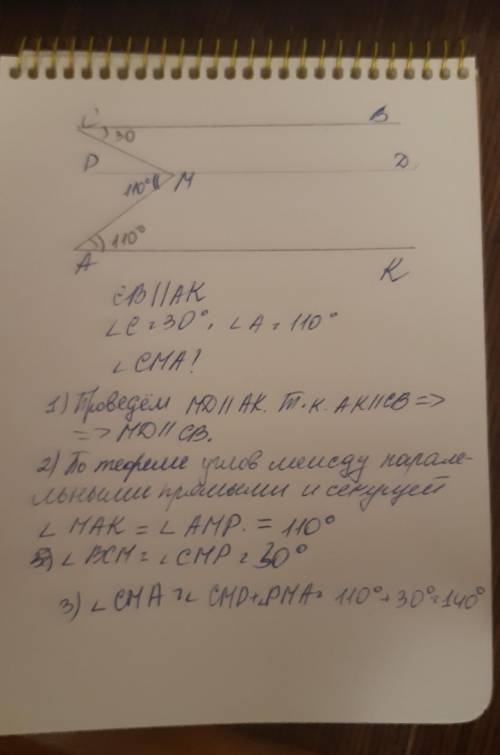 C B
30
P D
110° M
110°
A K
CB // AK
∠C = 30°, ∠A = 110°
∠CMA?
1) Проведём MD // AK. Т.к. AK // CB =>
=> MD // CB.
2) По теореме углов между парале-
льными прямыми и секущей
∠ MAK = ∠ AMP. = 110°
∠ BCM = ∠ CMP = 30°
3) ∠ CMA = ∠ CMD + ∠PMA = 110° + 30° = 140°